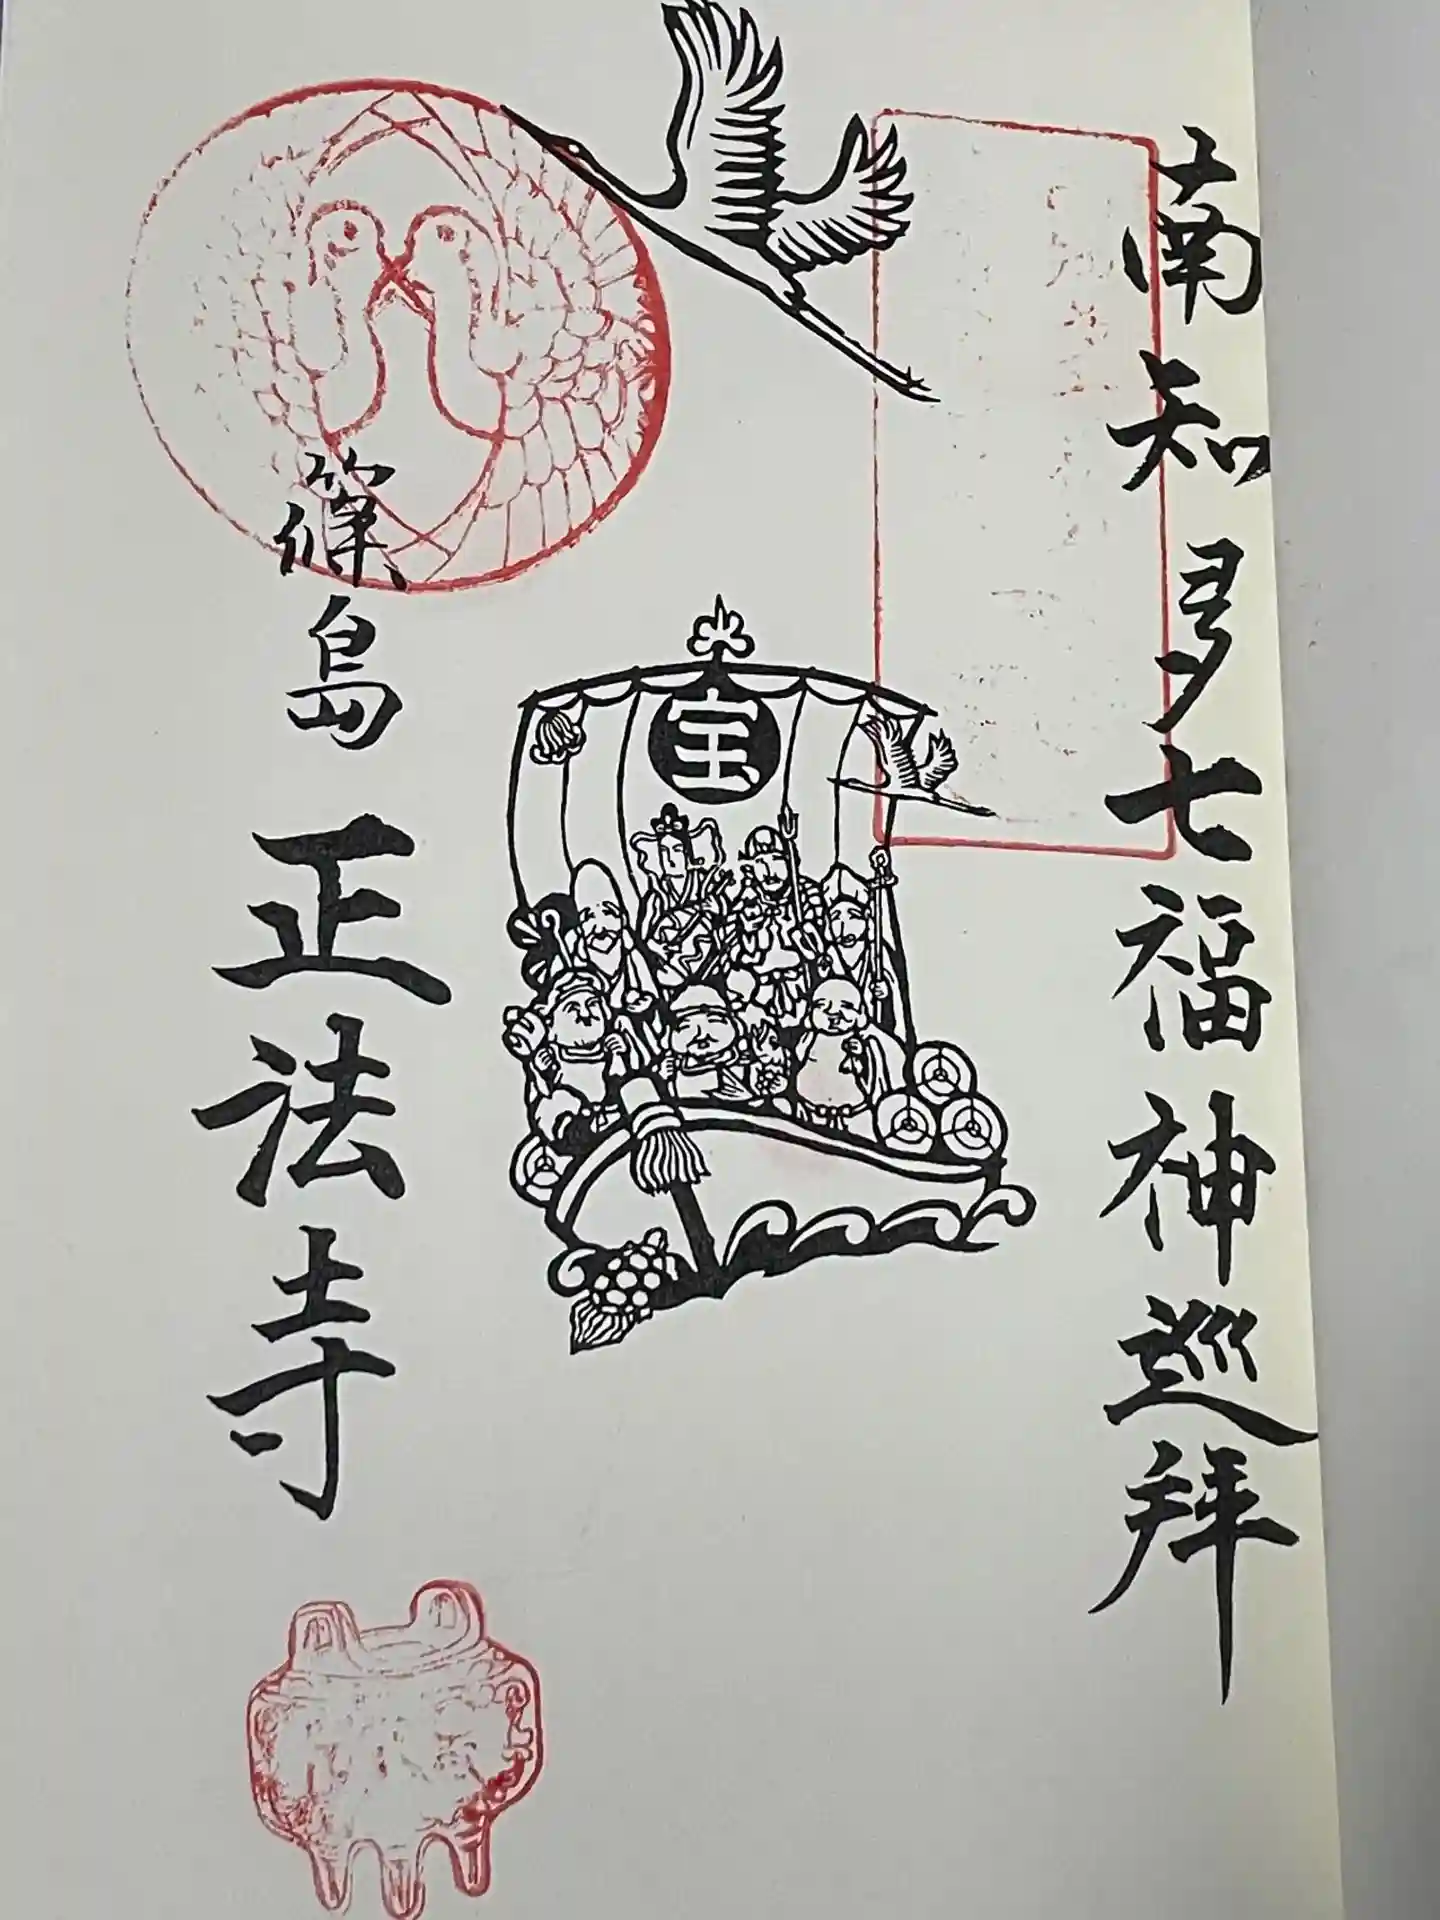 南知多七福神巡拝
宝
篠島 正法寺